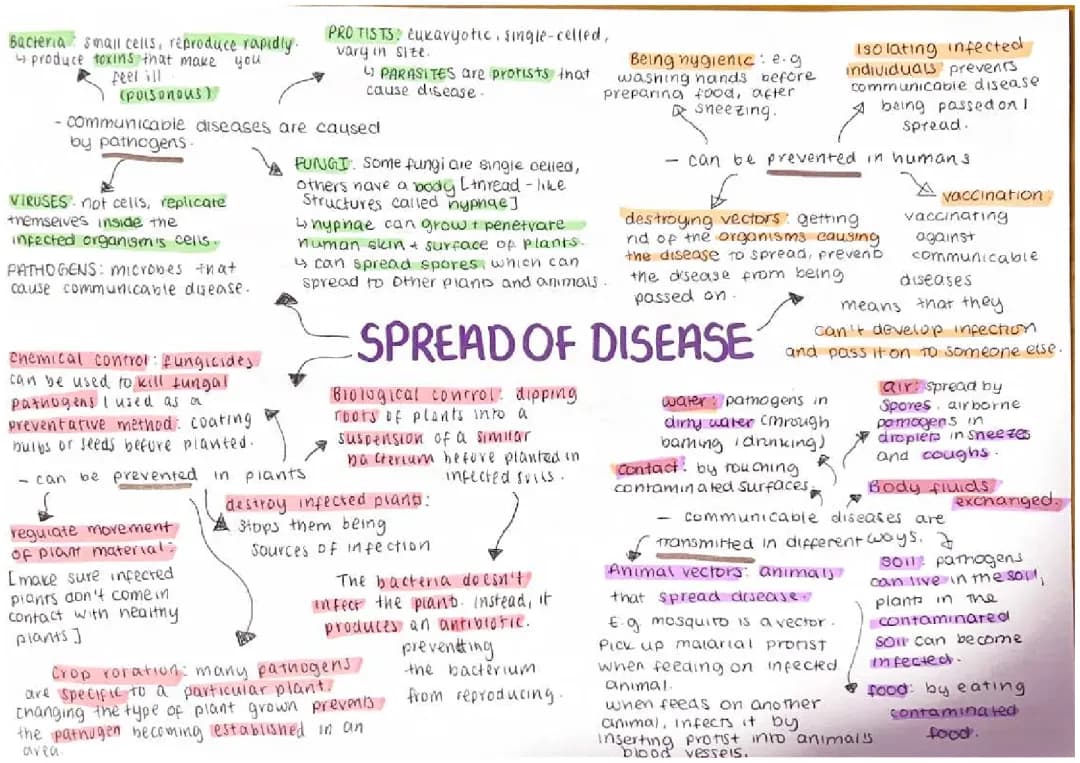 Bacteria: small cells, reproduce rapidly.
↳ produce toxins that make you
feel ill
(poisonous)
PROTISTS: eukaryotic, single-celled,
vary in size.
↳ PARASITES are protists that
cause disease.
- communicable diseases are caused
by pathogens.
VIRUSES: not cells, replicate
themselves inside the
infected organism's cells.
PATHOGENS: microbes that
cause communicable disease.
FUNGI: Some fungi are single celled,
others have a body [thread-like
structures called hyphae]
↳ hyphae can grow + penetrate
human skin + surface of plants.
↳ can spread spores, which can
spread to other plants and animals.
Being hygienic: e.g
washing hands before
preparing food, after
sneezing.
Isolating infected
individuals prevents
communicable disease
being passed on /
spread.
- can be prevented in humans
destroying vectors: getting
rid of the organisms causing
the disease to spread, prevents
the disease from being
passed on.
vaccination
vaccinating
against
communicable
diseases
means that they
can't develop infection
and pass it on to someone else.
SPREAD OF DISEASE
Chemical control: fungicides
can be used to kill fungal
pathogens / used as a
preventative method: coating
bulbs or seeds before planted.
- can be prevented in plants
Biological control: dipping
roots of plants into a
suspension of a similar
bacterium before planted in
infected soils.
destroy infected plants:
stops them being
sources of infection
regulate movement
of plant material:
[make sure infected
plants don't come in
contact with healthy
plants]
The bacteria doesn't
infect the plant. Instead, it
produces an antibiotic.
preventing
the bacterium
from reproducing.
Crop rotation: many pathogens
are specific to a particular plant.
Changing the type of plant grown prevents
the pathogen becoming established in an
area.
water: pathogens in
dirty water (through
bathing / drinking)
contact: by touching
contaminated surfaces.
air: spread by
spores. airborne
pathogens in
droplets in sneezes
and coughs.
Body fluids
exchanged.
- communicable diseases are
transmitted in different ways.
Animal vectors: animals
that spread disease.
E.g. mosquito is a vector.
Pick up malarial protist
when feeding on infected
animal.
when feeds on another
animal, infects it by
inserting protist into animal's
blood vessels.
soil: pathogens
can live in the soil,
plants in the
contaminated
soil can become
infected.
food: by eating
contaminated
food.